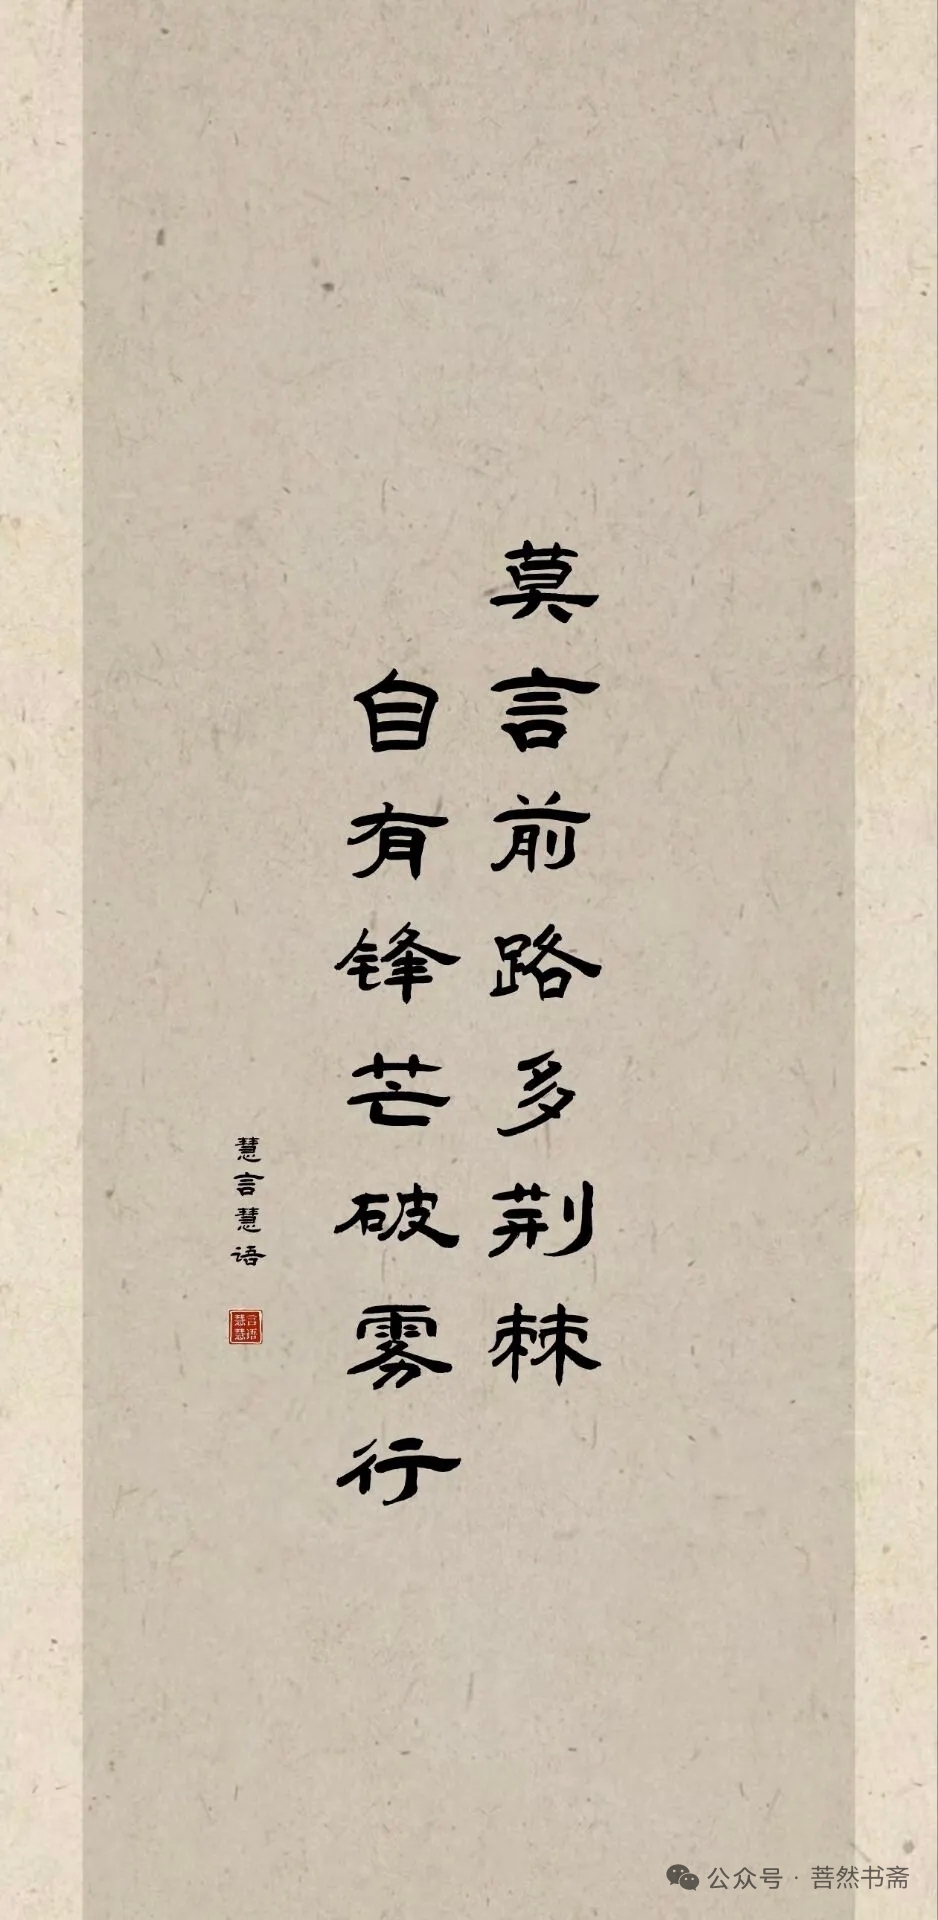 莫言前路多荆棘
自有锋芒破雾行
慧言慧语
慧慧言语
公众号 · 菩然书斋